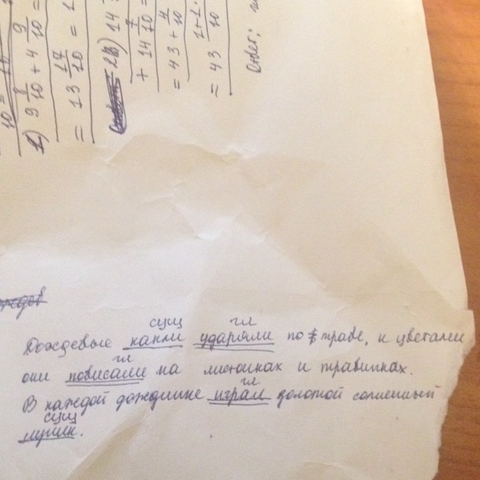 1) 9 8/10 + 4 9/10
= 13 17/10 = 1
2) 14
+ 14 7/10
= 43 +
= 43
Ответ:
сущ гл
Дождевые капли ударяли по траве, и цветам
гл
они повисали на листиках и травинках.
гл
В каждой дождинке играл золотой солнечный
сущ
лучик.